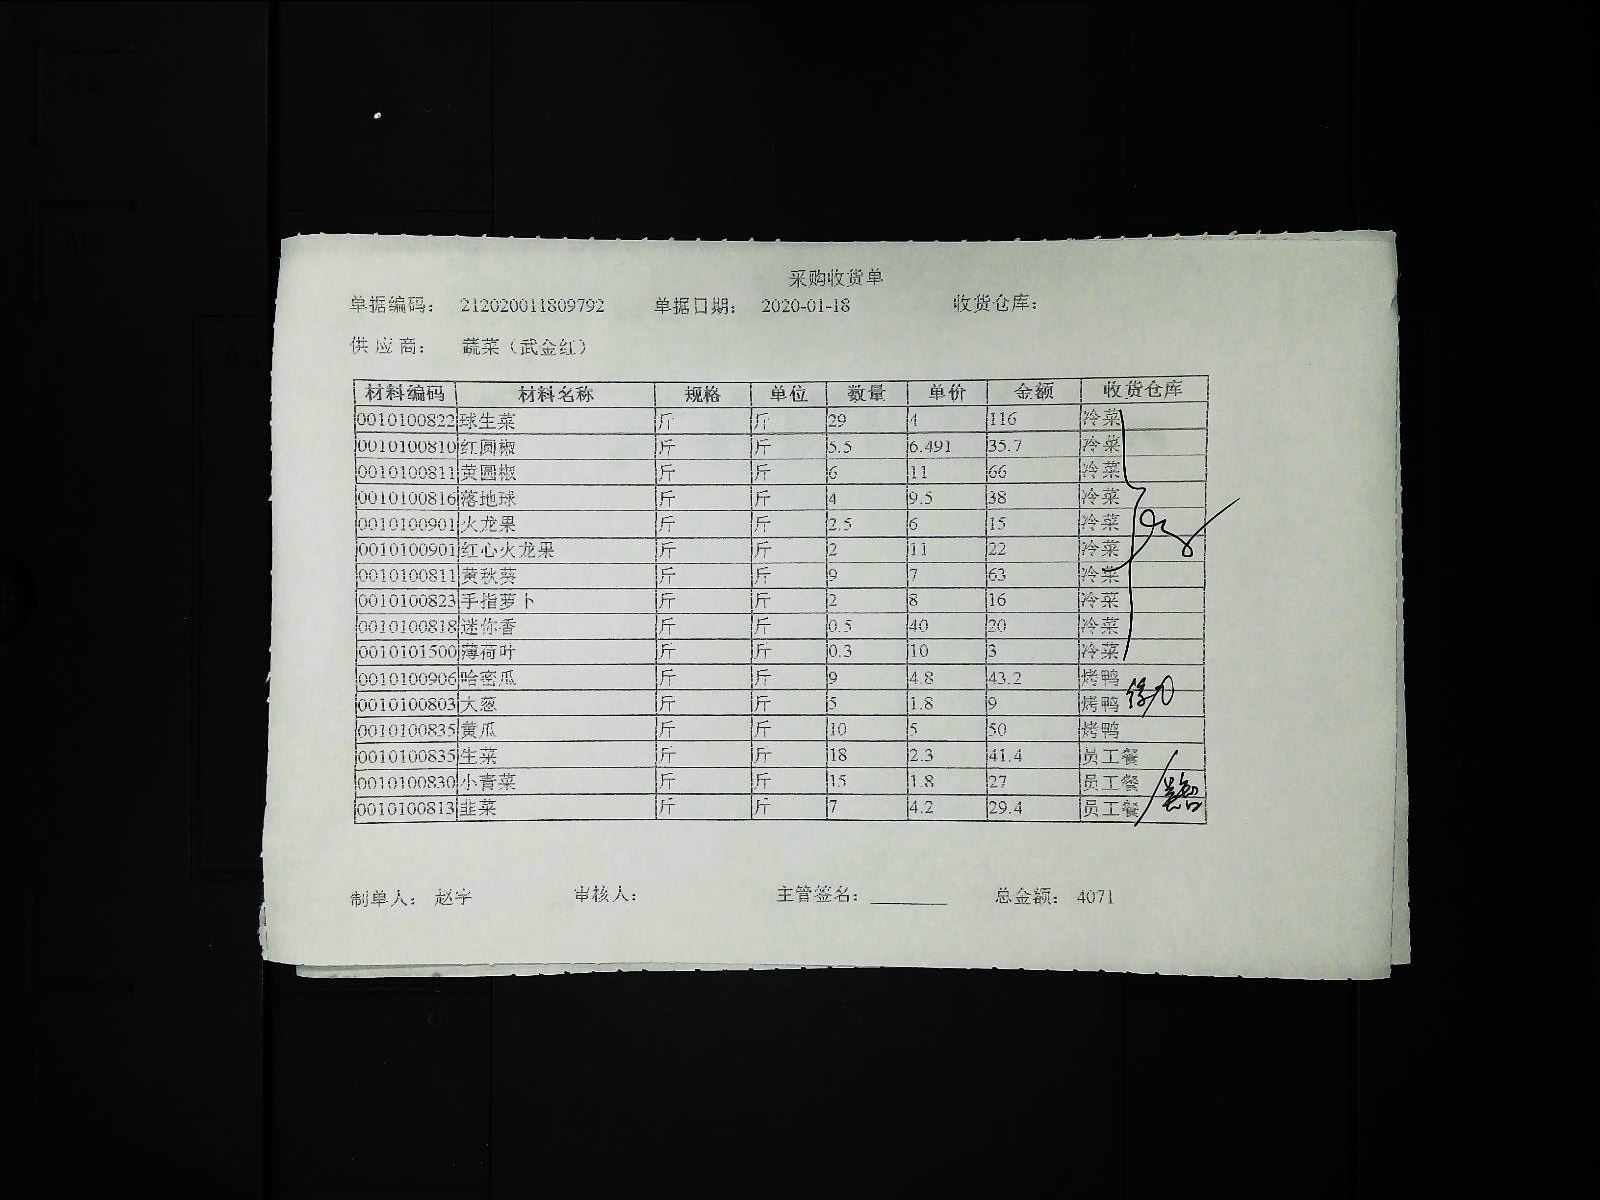 采购收货单
单据编码： 212020011809792 单据日期： 2020-01-18 收货仓库：
供 应 商： 蔬菜（武金红）
材料编码 材料名称 规格 单位 数量 单价 金额 收货仓库
0010100822 球生菜 斤 斤 29 4 116 冷菜
0010100810 红圆椒 斤 斤 5.5 6.491 35.7 冷菜
0010100811 黄圆椒 斤 斤 6 11 66 冷菜
0010100816 落地球 斤 斤 4 9.5 38 冷菜
0010100901 火龙果 斤 斤 2.5 6 15 冷菜
0010100901 红心火龙果 斤 斤 2 11 22 冷菜
0010100811 黄秋葵 斤 斤 9 7 63 冷菜
0010100823 手指萝卜 斤 斤 2 8 16 冷菜
0010100818 迷你香 斤 斤 0.5 40 20 冷菜
0010101500 薄荷叶 斤 斤 0.3 10 3 冷菜
0010100906 哈密瓜 斤 斤 9 4.8 43.2 烤鸭
0010100803 大葱 斤 斤 5 1.8 9 烤鸭
0010100835 黄瓜 斤 斤 10 5 50 烤鸭
0010100835 生菜 斤 斤 18 2.3 41.4 员工餐
0010100830 小青菜 斤 斤 15 1.8 27 员工餐
0010100813 韭菜 斤 斤 7 4.2 29.4 员工餐
制单人： 赵宇 审核人： 主管签名： 总金额： 4071